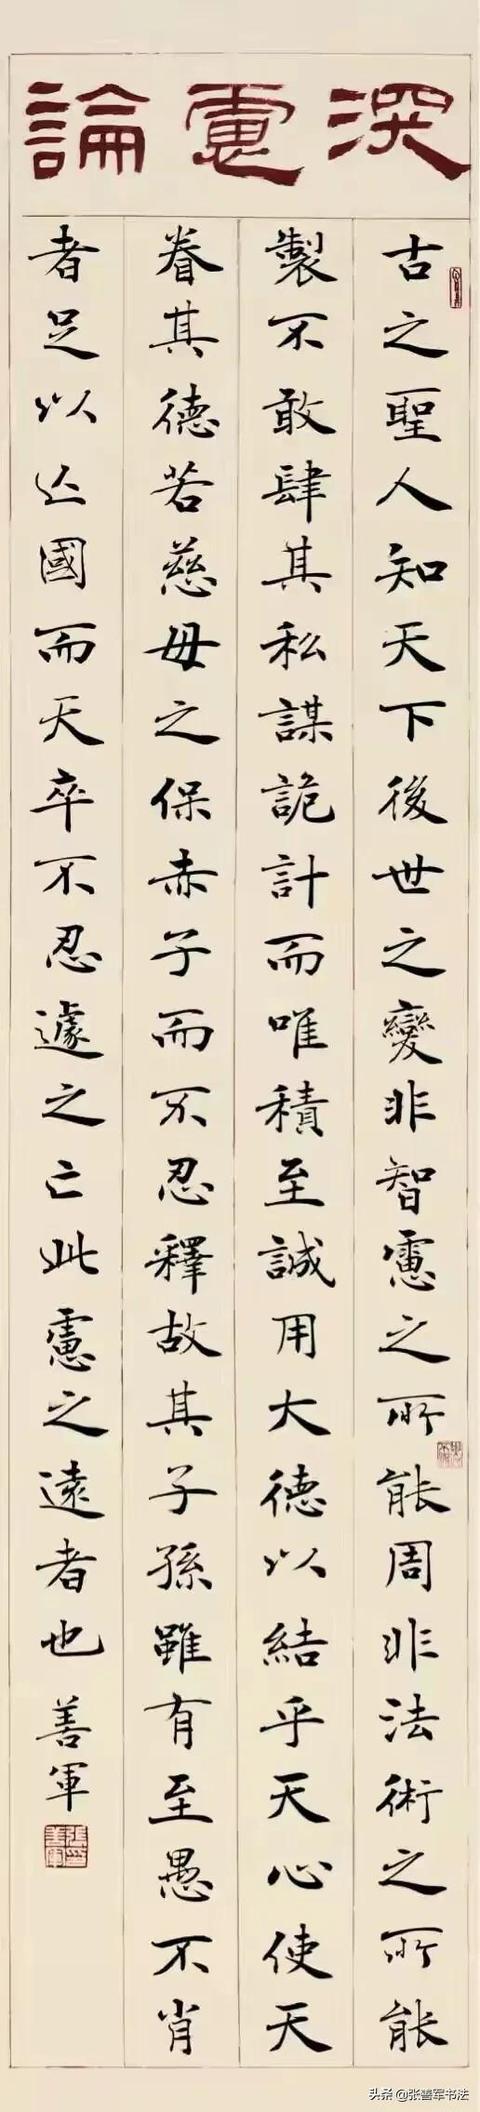 深慮論
古之聖人知天下後世之變非智慮之所能周非法術之所能
製不敢肆其私謀詭計而唯積至誠用大德以結乎天心使天
眷其德若慈母之保赤子而不忍釋故其子孫雖有至愚不肖
者足以亾國而天卒不忍遽之亡此慮之遠者也 善軍
張善軍
头条 @张善军书法